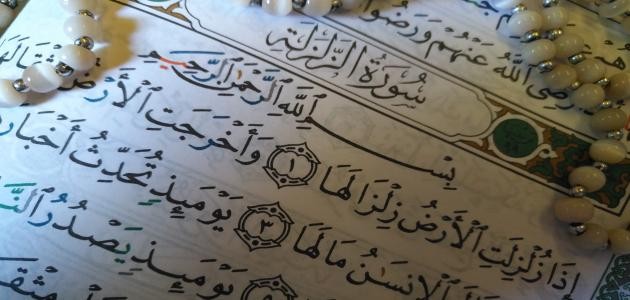 رَّضِىَ ٱللَّهُ عَنْهُمْ وَرَضُوا
سُورَةُ الزَّلْزَلَةِ
بِسْمِ ٱللَّهِ ٱلرَّحْمَٰنِ ٱلرَّحِيمِ
إِذَا زُلْزِلَتِ ٱلْأَرْضُ زِلْزَالَهَا ١ وَأَخْرَجَتِ ٱلْأَرْضُ
ٱلْإِنسَٰنُ مَا لَهَا ٣ يَوْمَئِذٍ تُحَدِّثُ أَخْبَارَ
يَوْمَئِذٍ يَصْدُرُ ٱلنَّا